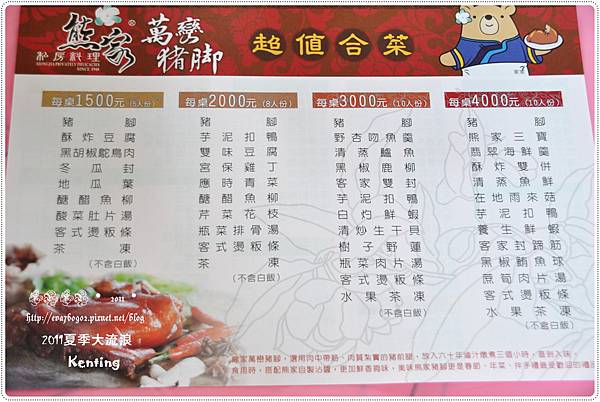 熊家®
私房料理
XIONGJIA PRIVATELY DELICACIES
SINCE 1966
萬巒
豬腳
超值合菜
每桌1500元(5人份)
豬腳
酥炸豆腐
黑胡椒鴕鳥肉
冬瓜封
地瓜葉
醋醋魚柳
酸菜肚片湯
客式燙粄條
茶凍
(不含白飯)
每桌2000元(8人份)
豬腳
芋泥扣鴨
雙味豆腐
宮保雞丁
應時青菜
醋醋魚柳
芹菜花枝
瓶菜排骨湯
客式燙粄條
茶凍
(不含白飯)
每桌3000元(10人份)
豬腳
野杏吻魚羹
清蒸鱸魚
黑椒鹿柳
客家雙封
芋泥扣鴨
白灼鮮蝦
清炒生干貝
樹子野蓮
瓶菜肉片湯
客式燙粄條
水果茶凍
每桌4000元(10人份)
豬腳
熊家三寶
翡翠海鮮羹
酥炸雙併
清蒸魚鮮
在地雨來菇
芋泥扣鴨
養生鮮蝦
客家封蹄筋
黑椒鮪魚球
蔗筍肉片湯
客式燙粄條
水果茶凍
熊家萬巒豬腳，選用肉中帶筋、肉質紮實的豬前腿，放入六十年滷汁燉煮三個小時，直到入味。
食用時，搭配熊家自製沾醬，更加鮮香夠味，美味熊家豬腳更是春節、年菜、拌手禮最受歡迎的禮
2011
http://eva7609o2.pixnet.net/blog
2011夏季大流浪
Kenting